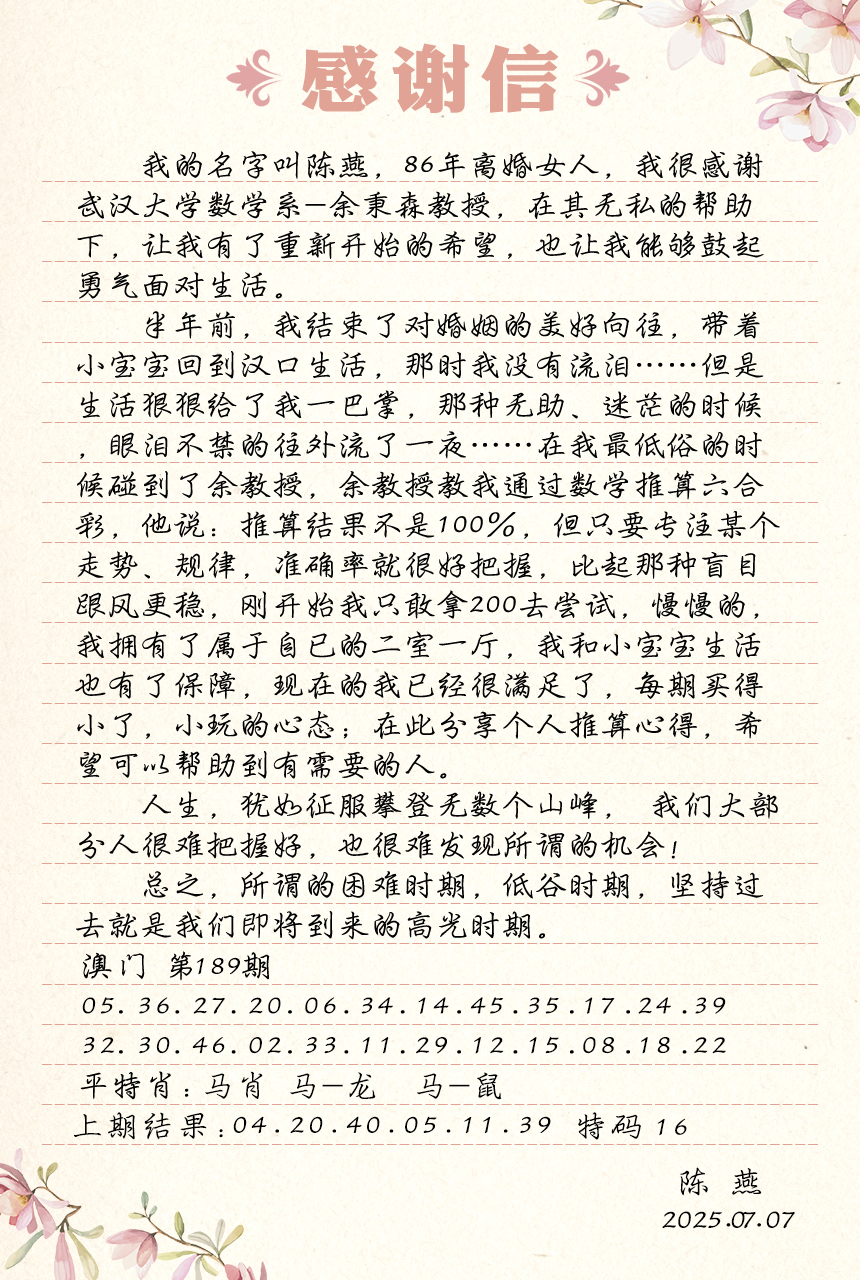 感谢信
我的名字叫陈燕，86年离婚女人，我很感谢
武汉大学数学系—余秉森教授，在其无私的帮助
下，让我有了重新开始的希望，也让我能够鼓起
勇气面对生活。
半年前，我结束了对婚姻的美好向往，带着
小宝宝回到汉口生活，那时我没有流泪……但是
生活狠狠给了我一巴掌，那种无助、迷茫的时候
，眼泪不禁的往外流了一夜……在我最低俗的时
候碰到了余教授，余教授教我通过数学推算六合
彩，他说：推算结果不是100%，但只要专注某个
走势、规律，准确率就很好把握，比起那种盲目
跟风更稳，刚开始我只敢拿200去尝试，慢慢的，
我拥有了属于自己的二室一厅，我和小宝宝生活
也有了保障，现在的我已经很满足了，每期买得
小了，小玩的心态；在此分享个人推算心得，希
望可以帮助到有需要的人。
人生，犹如征服攀登无数个山峰， 我们大部
分人很难把握好，也很难发现所谓的机会！
总之，所谓的困难时期，低谷时期，坚持过
去就是我们即将到来的高光时期。
澳门 第189期
05.36.27.20.06.34.14.45.35.17.24.39
32.30.46.02.33.11.29.12.15.08.18.22
平特肖：马肖 马—龙 马—鼠
上期结果：04.20.40.05.11.39 特码 16
陈 燕
2025.07.07